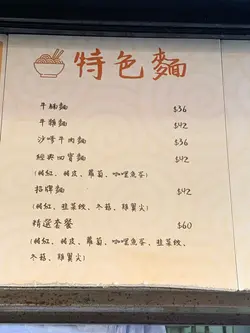 特色麵
牛腩麵 $36
牛雜麵 $42
沙嗲牛肉麵 $36
經典四寶麵 $42
(豬紅、豬皮、蘿蔔、咖喱魚蛋)
招牌麵 $42
(豬紅、韮菜餃、冬菇、雞翼尖)
精選套餐 $60
(豬紅、豬皮、蘿蔔、咖喱魚蛋、韮菜餃、
冬菇、雞翼尖)